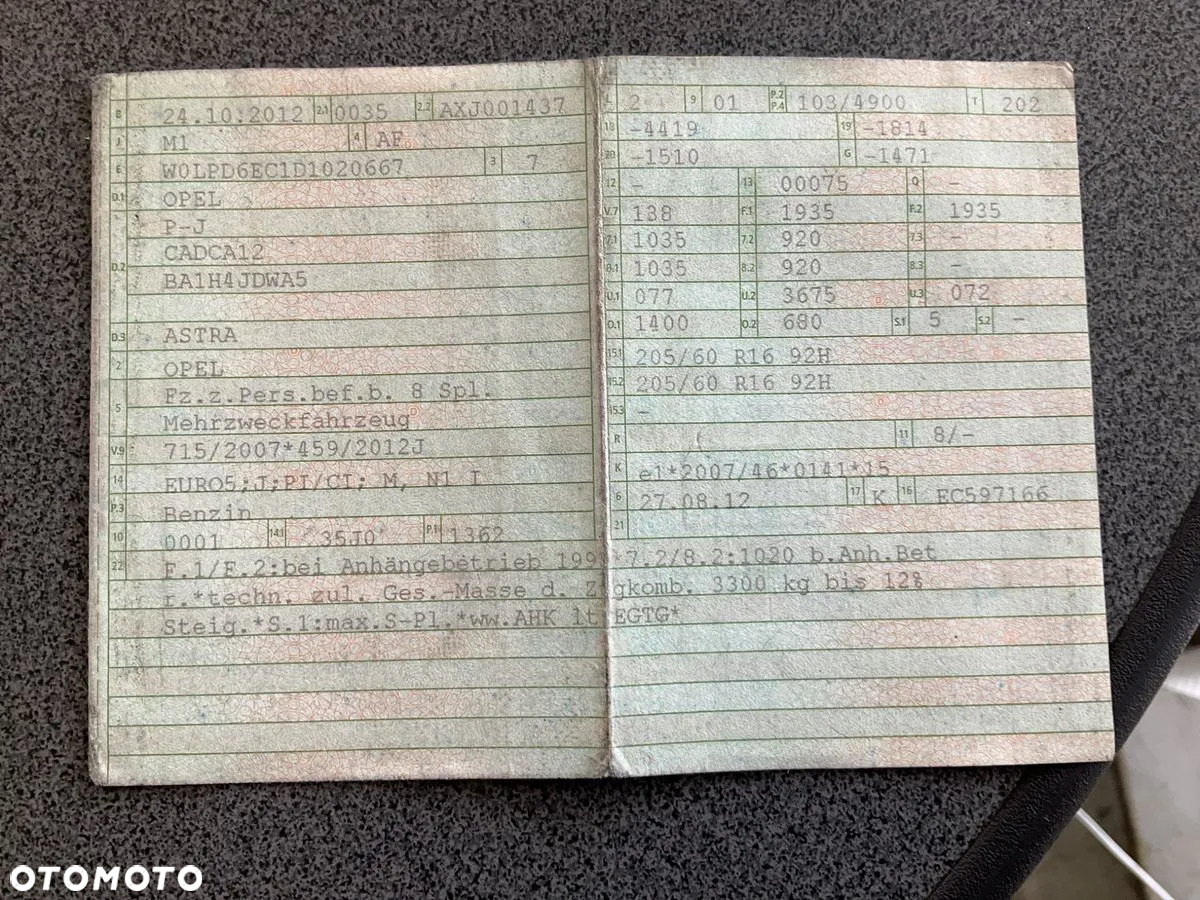 B 24.10.2012 2.1 0035 2.2 AXJ001437
J M1 4 AF
E W0LPD6EC1D1020667 3 7
D.1 OPEL
P-J
D.2 CADCA12
BA1H4JDWA5
D.3 ASTRA
2 OPEL
5 Fz.z.Pers.bef.b. 8 Spl.
Mehrzweckfahrzeug
V.9 715/2007*459/2012J
14 EURO5;J;PI/CI; M, N1 I
P.3 Benzin
10 0001 14.1 35J0 P.1 1362
L 2 9 01 P.2 P.4 103/4900 T 202
18 -4419 19 -1814
20 -1510 G -1471
12 - 13 00075 Q -
V.7 138 F.1 1935 F.2 1935
7.1 1035 7.2 920 7.3 -
8.1 1035 8.2 920 8.3 -
U.1 077 U.2 3675 U.3 072
O.1 1400 O.2 680 S.1 5 S.2 -
15.1 205/60 R16 92H
15.2 205/60 R16 92H
15.3 -
R 11 8/-
K e1*2007/46*0141*15
6 27.08.12 17 K 16 EC597166
21
22 F.1/F.2:bei Anhängebetrieb *7.2/8.2:1020 b.Anh.Bet
r.*techn. zul. Ges.-Masse d. Zugkomb. 3300 kg bis 12%
Steig.*S.1:max.S-Pl.*ww.AHK lt.EGTG*
OTOMOTO